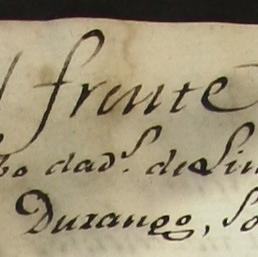 frente
dad.^s de Lin
Durango, So